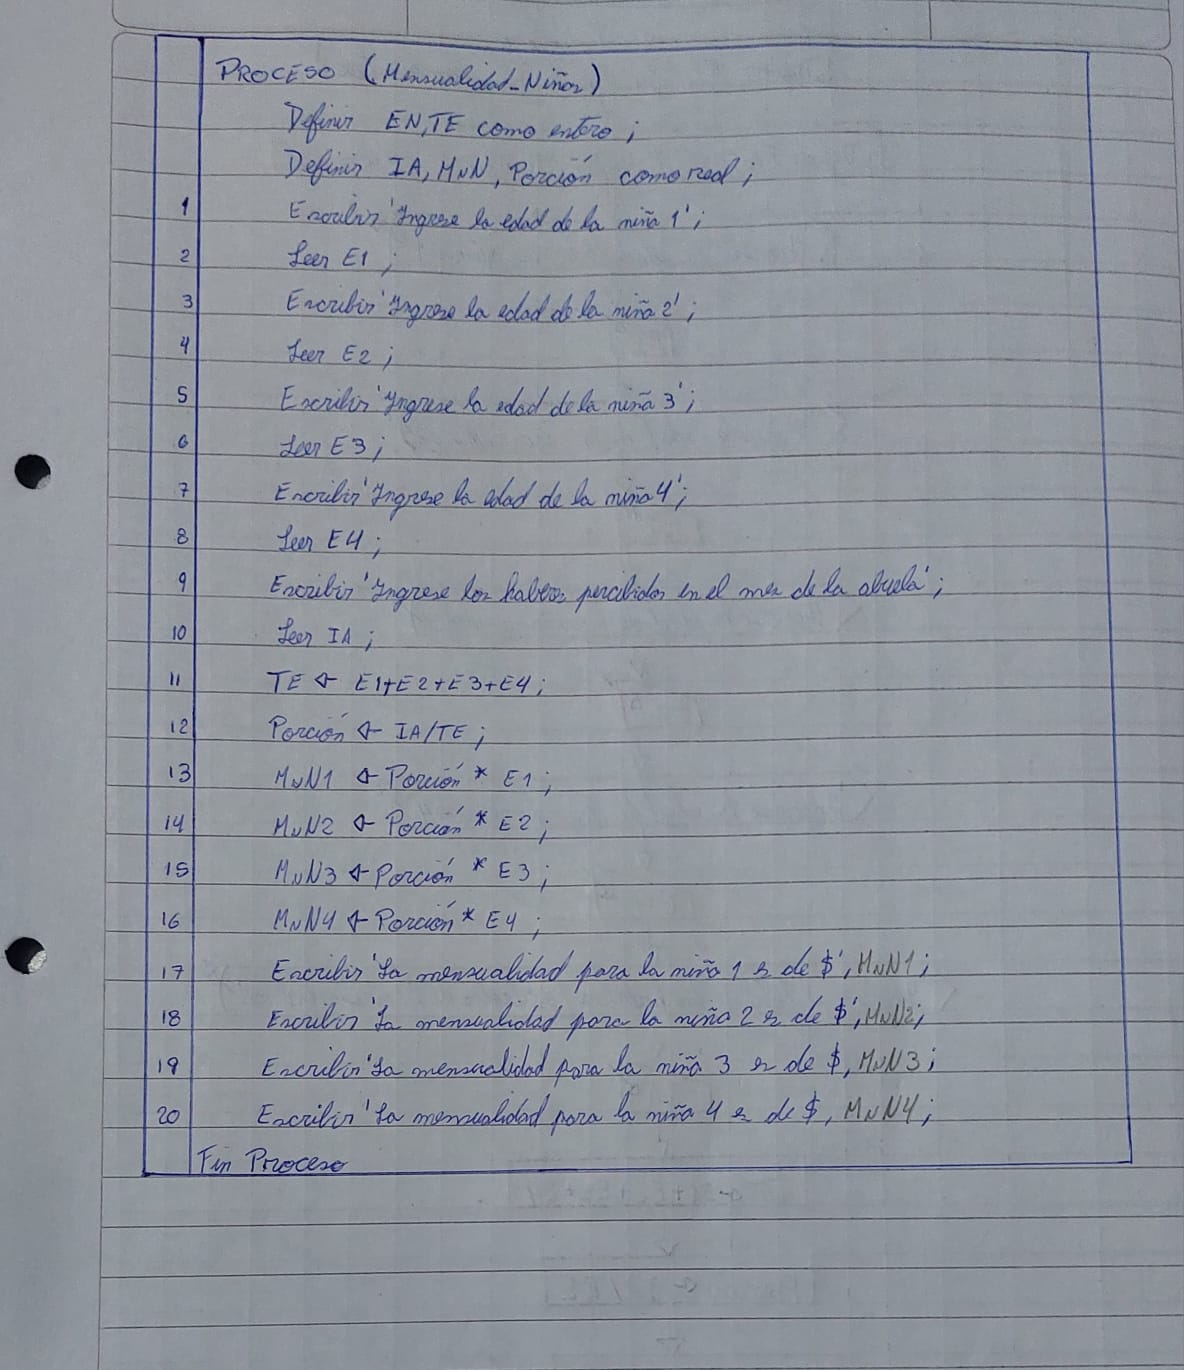 PROCESO (Mensualidad_Niñas)
Definir EN, TE como entero;
Definir IA, MxN, Porción como real;
1 Escribir 'Ingrese la edad de la niña 1';
2 Leer E1;
3 Escribir 'Ingrese la edad de la niña 2';
4 Leer E2;
5 Escribir 'Ingrese la edad de la niña 3';
6 Leer E3;
7 Escribir 'Ingrese la edad de la niña 4';
8 Leer E4;
9 Escribir 'Ingrese los haberes percibidos en el mes de la abuela';
10 Leer IA;
11 TE ← E1+E2+E3+E4;
12 Porción ← IA/TE;
13 MxN1 ← Porción * E1;
14 MxN2 ← Porción * E2;
15 MxN3 ← Porción * E3;
16 MxN4 ← Porción * E4;
17 Escribir 'La mensualidad para la niña 1 es de $', MxN1;
18 Escribir 'La mensualidad para la niña 2 es de $', MxN2;
19 Escribir 'La mensualidad para la niña 3 es de $, MxN3;
20 Escribir 'La mensualidad para la niña 4 es de $, MxN4;
Fin Proceso